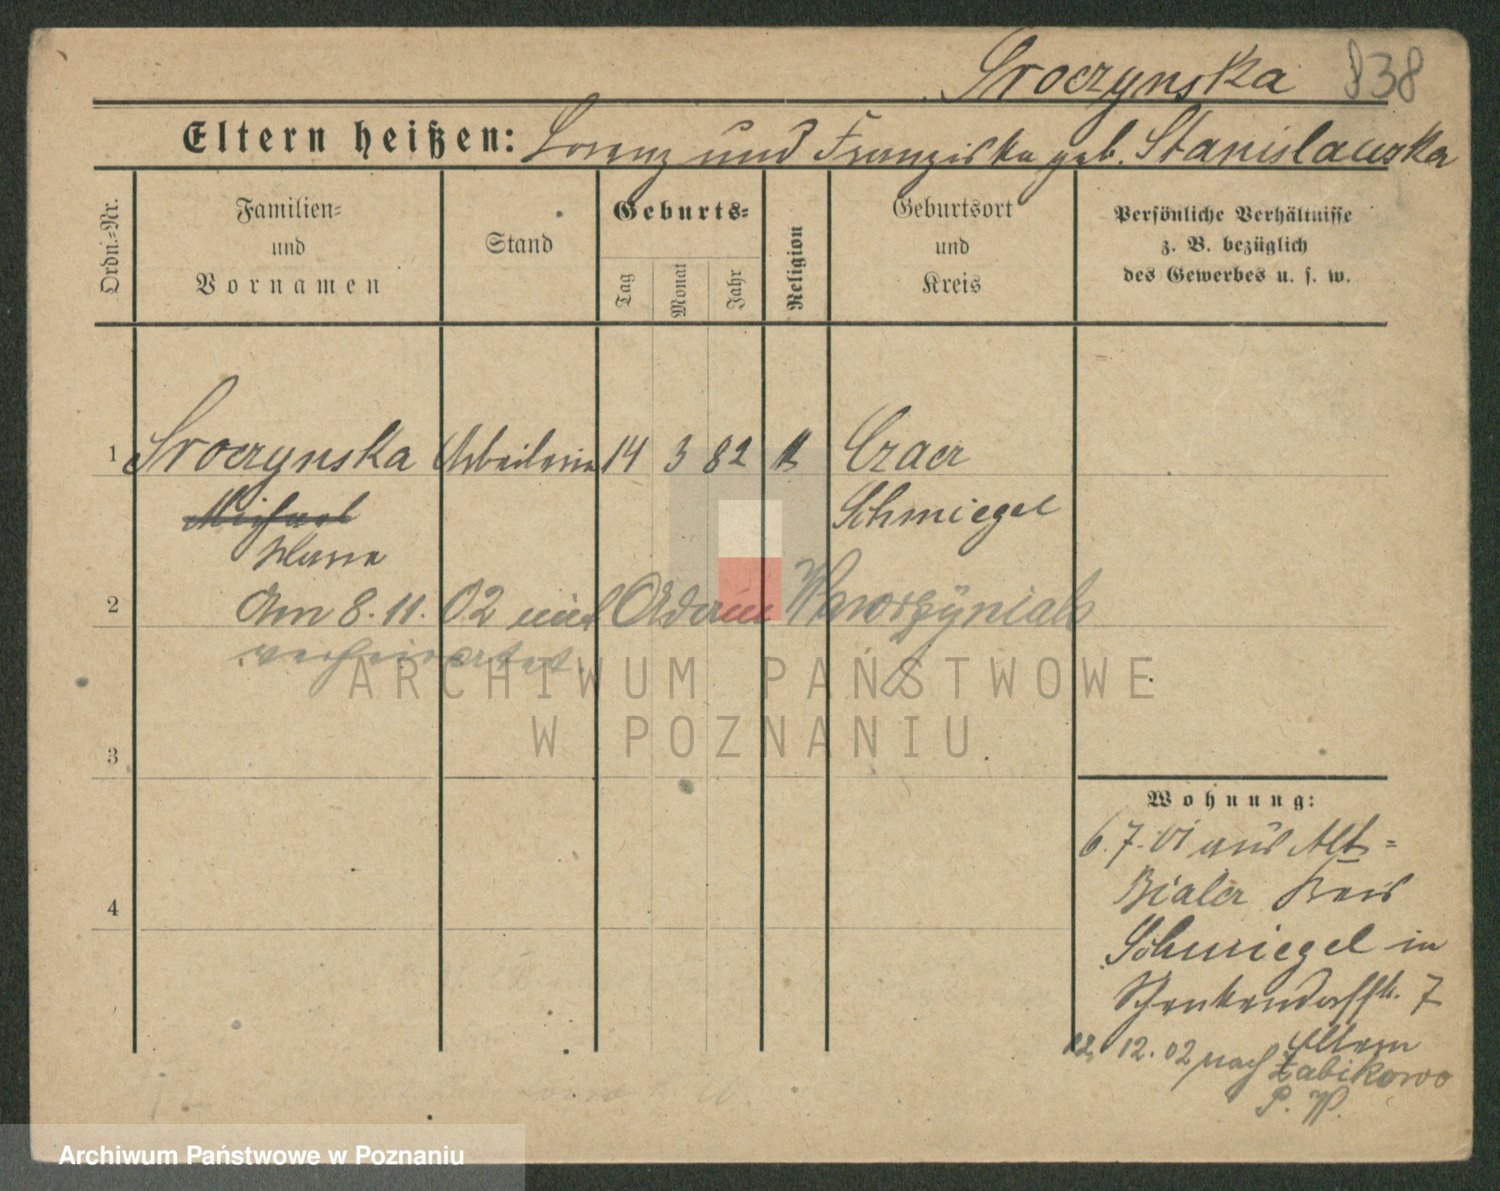 Sroczynska 838
Eltern heißen: Lorenz und Franziska geb. Stanislawska
Ordn.-Nr.
Familien-
und
Vornamen
Stand
Geburts-
Tag
Monat
Jahr
Religion
Geburtsort
und
Kreis
Persönliche Verhältnisse
z. B. bezüglich
des Gewerbes u. s. w.
1 Sroczynska Arbeiterin 14 3 82 k Czacz
Michael Schmiegel
2 Am 8. 11. 02 mit Adam Wawrzyniak
verheiratet.
ARCHIWUM PAŃSTWOWE
W POZNANIU
3
4
Wohnung:
6. 7. 01 aus Alt-
Bialcz Kreis
Schmiegel in
Schenkendorffstr. 7
12. 12. 02 nach
Żabikowo
P. W.
Archiwum Państwowe w Poznaniu